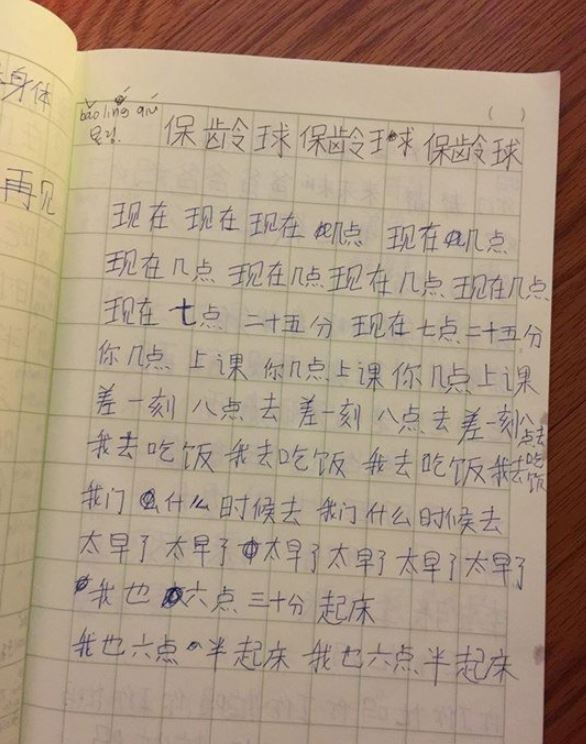 身体
再见
( )
bǎo líng qiú
볼링.
保龄球 保龄球 保龄球
现在 现在 现在 几点 现在 几点
现在几点 现在几点 现在几点 现在几点
现在 七点 二十五分 现在七点二十五分
你几点 上课 你几点上课 你几点上课
差一刻 八点 去 差一刻 八点 去 差一刻八点去
我去吃饭 我去吃饭 我去吃饭 我去吃饭
我门 什么时候去 我门什么时候去
太早了 太早了 太早了 太早了 太早了 太早了
我也 六点 三十分 起床
我也六点 半起床 我也六点半起床